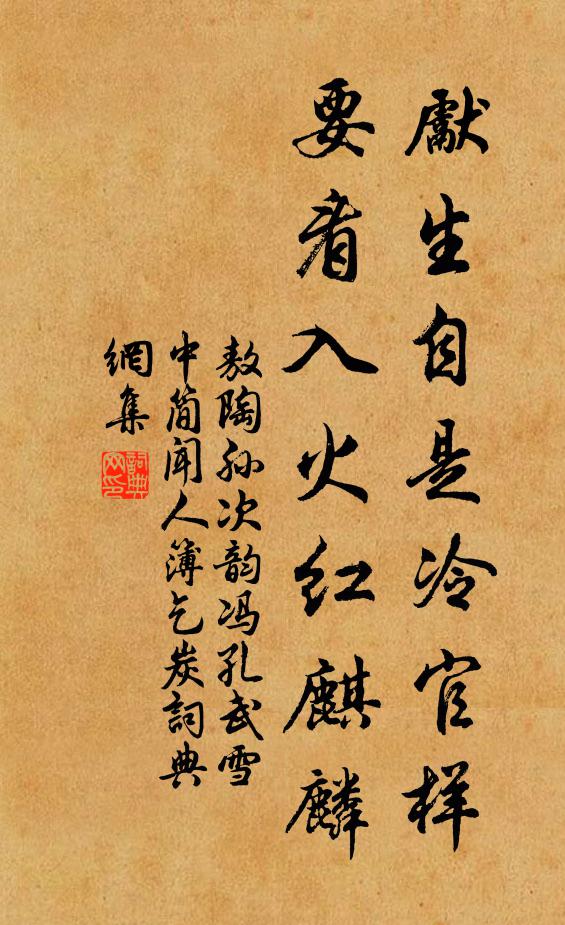 獻生自是冷官样
要看入火红麒麟
敖陶孙次韵冯孔武雪
中简闻人簿乞炭詞典
網集
詞典
网印